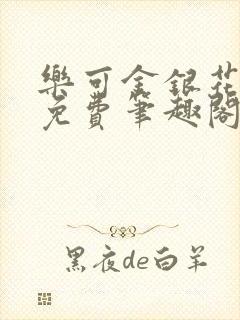 樂可金銀花
免費筆趣閣
黑夜de白羊